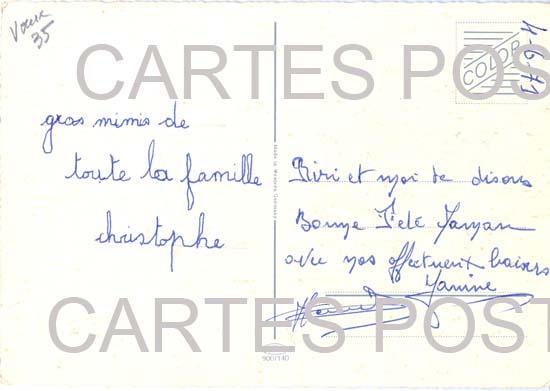 Voeux
35
COLOR
4-6-79
CARTES POST
gros mimis de
toute la famille
christophe
Made in Western Germany
Riri et moi te disons
Bonne Fête Maman
avec nos affectueux baisers
Janine
CARTES POST
900/140